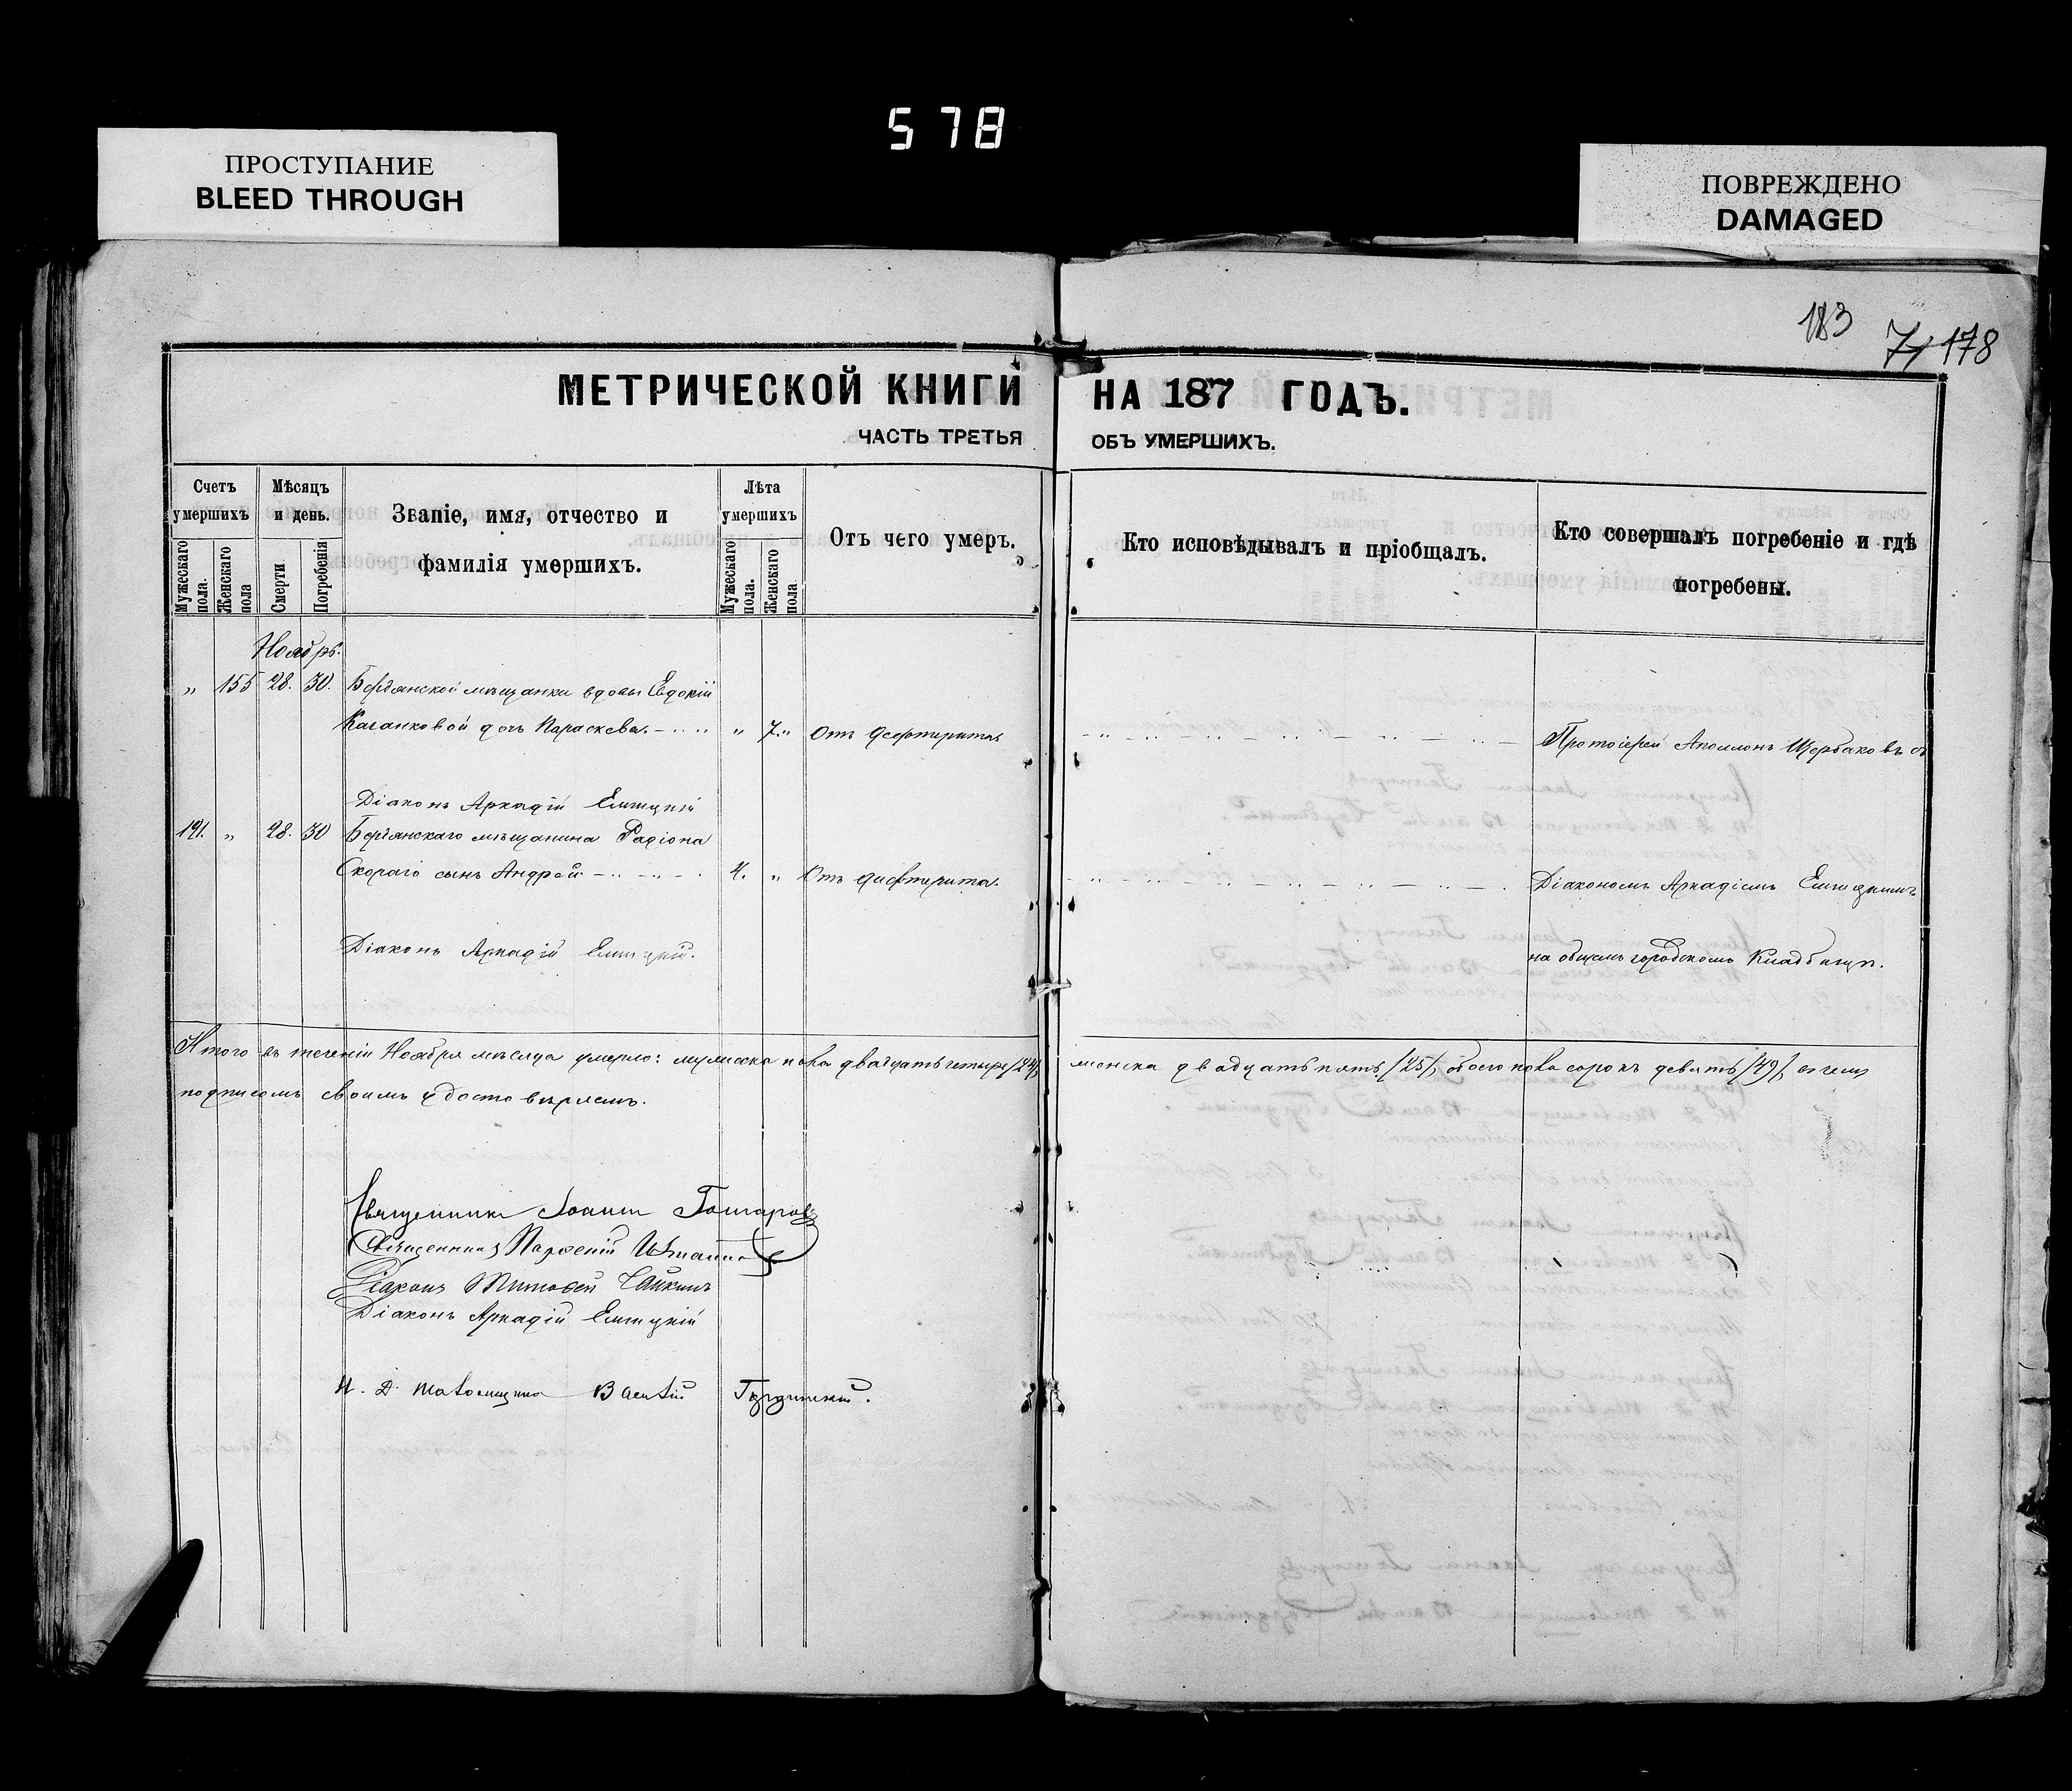 578
ПРОСТУПАНИЕ
BLEED THROUGH
ПОВРЕЖДЕНО
DAMAGED
183
71 178
МЕТРИЧЕСКОЙ КНИГИ НА 187 ГОДЪ.
ЧАСТЬ ТРЕТЬЯ ОБЪ УМЕРШИХЪ.
Счетъ умершихъ
Мужескаго пола.
Женскаго пола
Мѣсяцъ и день.
Смерти
Погребенія
Званіе, имя, отчество и
фамилія умершихъ.
Лѣта умершихъ
Мужескаго пола.
Женскаго пола
Отъ чего умеръ.
Кто исповѣдывалъ и пріобщалъ.
Кто совершалъ погребеніе и гдѣ
погребены.
Ноябрь.
„ 155 28. 30. Бердянской мѣщанки вдовы Евдокіи
дочь Параскева. „ 7. „ Отъ дифтерита. Протоіерей Аполлонъ Щербаковъ съ
Діаконъ Аркадій
191. „ 28. 30 Бердянскаго мѣщанина Радіона
Скораго сынъ Андрей 4. „ Отъ дифтерита. Діакономъ Аркадіемъ
Діаконъ Аркадій
на общемъ городскомъ Кладбищѣ.
Итого въ теченіи Ноября мѣсяца умерло: мужеска пола двадцать четыре /24/, женска двадцать пять /25/, обоего пола сорокъ девять /49/, въ чемъ
подписомъ своимъ удостовѣряемъ.
Священникъ Іоаннъ Гончаровъ
Священникъ Парфеній
Діаконъ Тимофей Чайкинъ
Діаконъ Аркадій
И. Д. Псаломщика